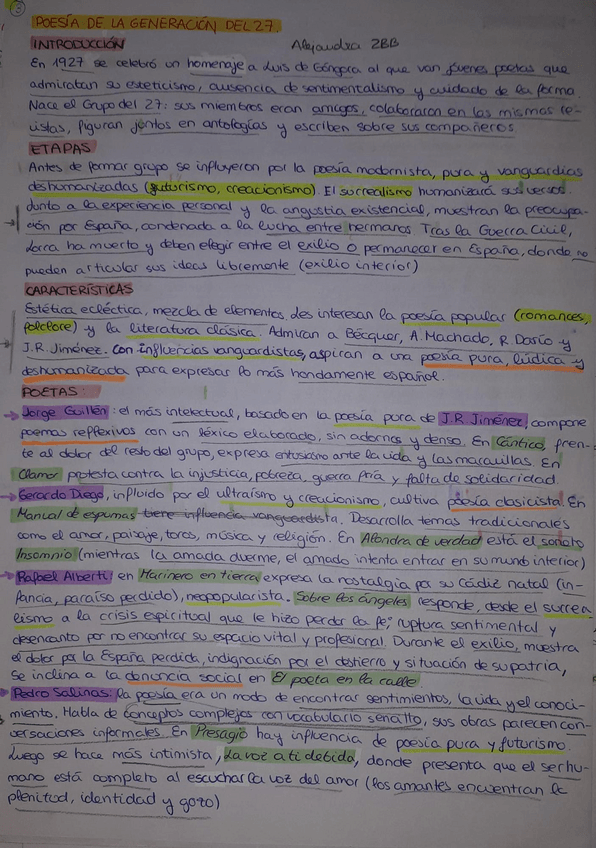 3
POESÍA DE LA GENERACIÓN DEL 27
INTRODUCCIÓN Alejandra 2BB
En 1927 se celebró un homenaje a Luis de Góngora al que van jóvenes poetas que
admiraban su esteticismo, ausencia de sentimentalismo y cuidado de la forma.
Nace el Grupo del 27: sus miembros eran amigos, colaboraron en las mismas re-
vistas, figuran juntos en antologías y escriben sobre sus compañeros.
ETAPAS
Antes de formar grupo se influyeron por la poesía modernista, pura y vanguardias
deshumanizadas (futurismo, creacionismo). El surrealismo humanizará sus versos.
Junto a la experiencia personal y la angustia existencial, muestran la preocupa-
ción por España, condenada a la lucha entre hermanos. Tras la Guerra Civil,
Lorca ha muerto y deben elegir entre el exilio o permanecer en España, donde no
pueden articular sus ideas libremente (exilio interior)
CARACTERÍSTICAS
Estética ecléctica, mezcla de elementos, les interesan la poesía popular (romances,
folclore) y la literatura clásica. Admiran a Bécquer, A. Machado, R. Darío y
J.R. Jiménez. Con influencias vanguardistas, aspiran a una poesía pura, lúdica y
deshumanizada para expresar lo más hondamente español.
POETAS
Jorge Guillén: el más intelectual, basado en la poesía pura de J.R. Jiménez, compone
poemas reflexivos con un léxico elaborado, sin adornos y denso. En Cántico, fren-
te al dolor del resto del grupo, expresa entusiasmo ante la vida y las maravillas. En
Clamor protesta contra la injusticia, pobreza, guerra fría y falta de solidaridad.
Gerardo Diego, influido por el ultraísmo y creacionismo, cultiva poesía clasicista. En
Manual de espumas tiene influencia vanguardista. Desarrolla temas tradicionales
como el amor, paisaje, toros, música y religión. En Alondra de verdad está el soneto
Insomnio (mientras la amada duerme, el amado intenta entrar en su mundo interior)
Rafael Alberti, en Marinero en tierra expresa la nostalgia por su Cádiz natal (in-
fancia, paraíso perdido), neopopularista. Sobre los ángeles responde, desde el surrea-
lismo a la crisis espiritual que le hizo perder la fe; ruptura sentimental y
desencanto por no encontrar su espacio vital y profesional. Durante el exilio, muestra
el dolor por la España perdida, indignación por el destierro y situación de su patria,
se inclina a la denuncia social en El poeta en la calle.
Pedro Salinas: la poesía era un modo de encontrar sentimientos, la vida y el conoci-
miento. Habla de conceptos complejos con vocabulario sencillo, sus obras parecen con-
versaciones informales. En Presagio hay influencia de poesía pura y futurismo.
Luego se hace más intimista, La voz a ti debida, donde presenta que el ser hu-
mano está completo al escuchar la voz del amor (los amantes encuentran la
plenitud, identidad y gozo)